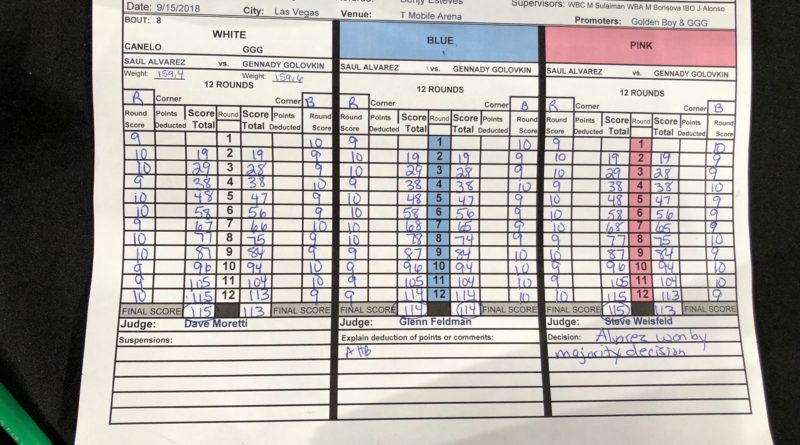 Date: 9/15/2018 City: Las Vegas Venue: T Mobile Arena Supervisors: WBC M Sulaiman WBA M Borisova IBO J Alonso
Promoters: Golden Boy & GGG
BOUT: 8
WHITE BLUE PINK
CANELO GGG
SAUL ALVAREZ vs. GENNADY GOLOVKIN SAUL ALVAREZ vs. GENNADY GOLOVKIN SAUL ALVAREZ vs. GENNADY GOLOVKIN
Weight: 159.4 Weight: 159.6
12 ROUNDS 12 ROUNDS 12 ROUNDS
R Corner Corner B R Corner Corner B R Corner Corner B
Round Score Points Deducted Score Total Round Score Total Points Deducted Round Score Round Score Points Deducted Score Total Round Score Total Points Deducted Round Score Round Score Points Deducted Score Total Round Score Total Points Deducted Round Score
9 1 10 9 1 10 9 1 10
10 19 2 19 9 10 19 2 19 9 10 19 2 19 9
10 29 3 28 9 10 29 3 28 9 10 29 3 28 9
9 38 4 38 10 9 38 4 38 10 9 38 4 38 10
10 48 5 47 9 10 48 5 47 9 10 48 5 47 9
10 58 6 56 9 10 58 6 56 9 10 58 6 56 9
9 67 7 66 10 10 68 7 65 9 10 68 7 65 9
10 77 8 75 9 10 78 8 74 9 9 77 8 75 10
10 87 9 84 9 9 87 9 84 10 10 87 9 84 9
9 96 10 94 10 9 96 10 94 10 9 96 10 94 10
9 105 11 104 10 9 105 11 104 10 9 105 11 104 10
10 115 12 113 9 9 114 12 114 10 10 115 12 113 9
FINAL SCORE 115 113 FINAL SCORE FINAL SCORE 114 114 FINAL SCORE FINAL SCORE 115 113 FINAL SCORE
Judge: Dave Moretti Judge: Glenn Feldman Judge: Steve Weisfeld
Suspensions: Explain deduction of points or comments: Decision: Alvarez won by
majority decision